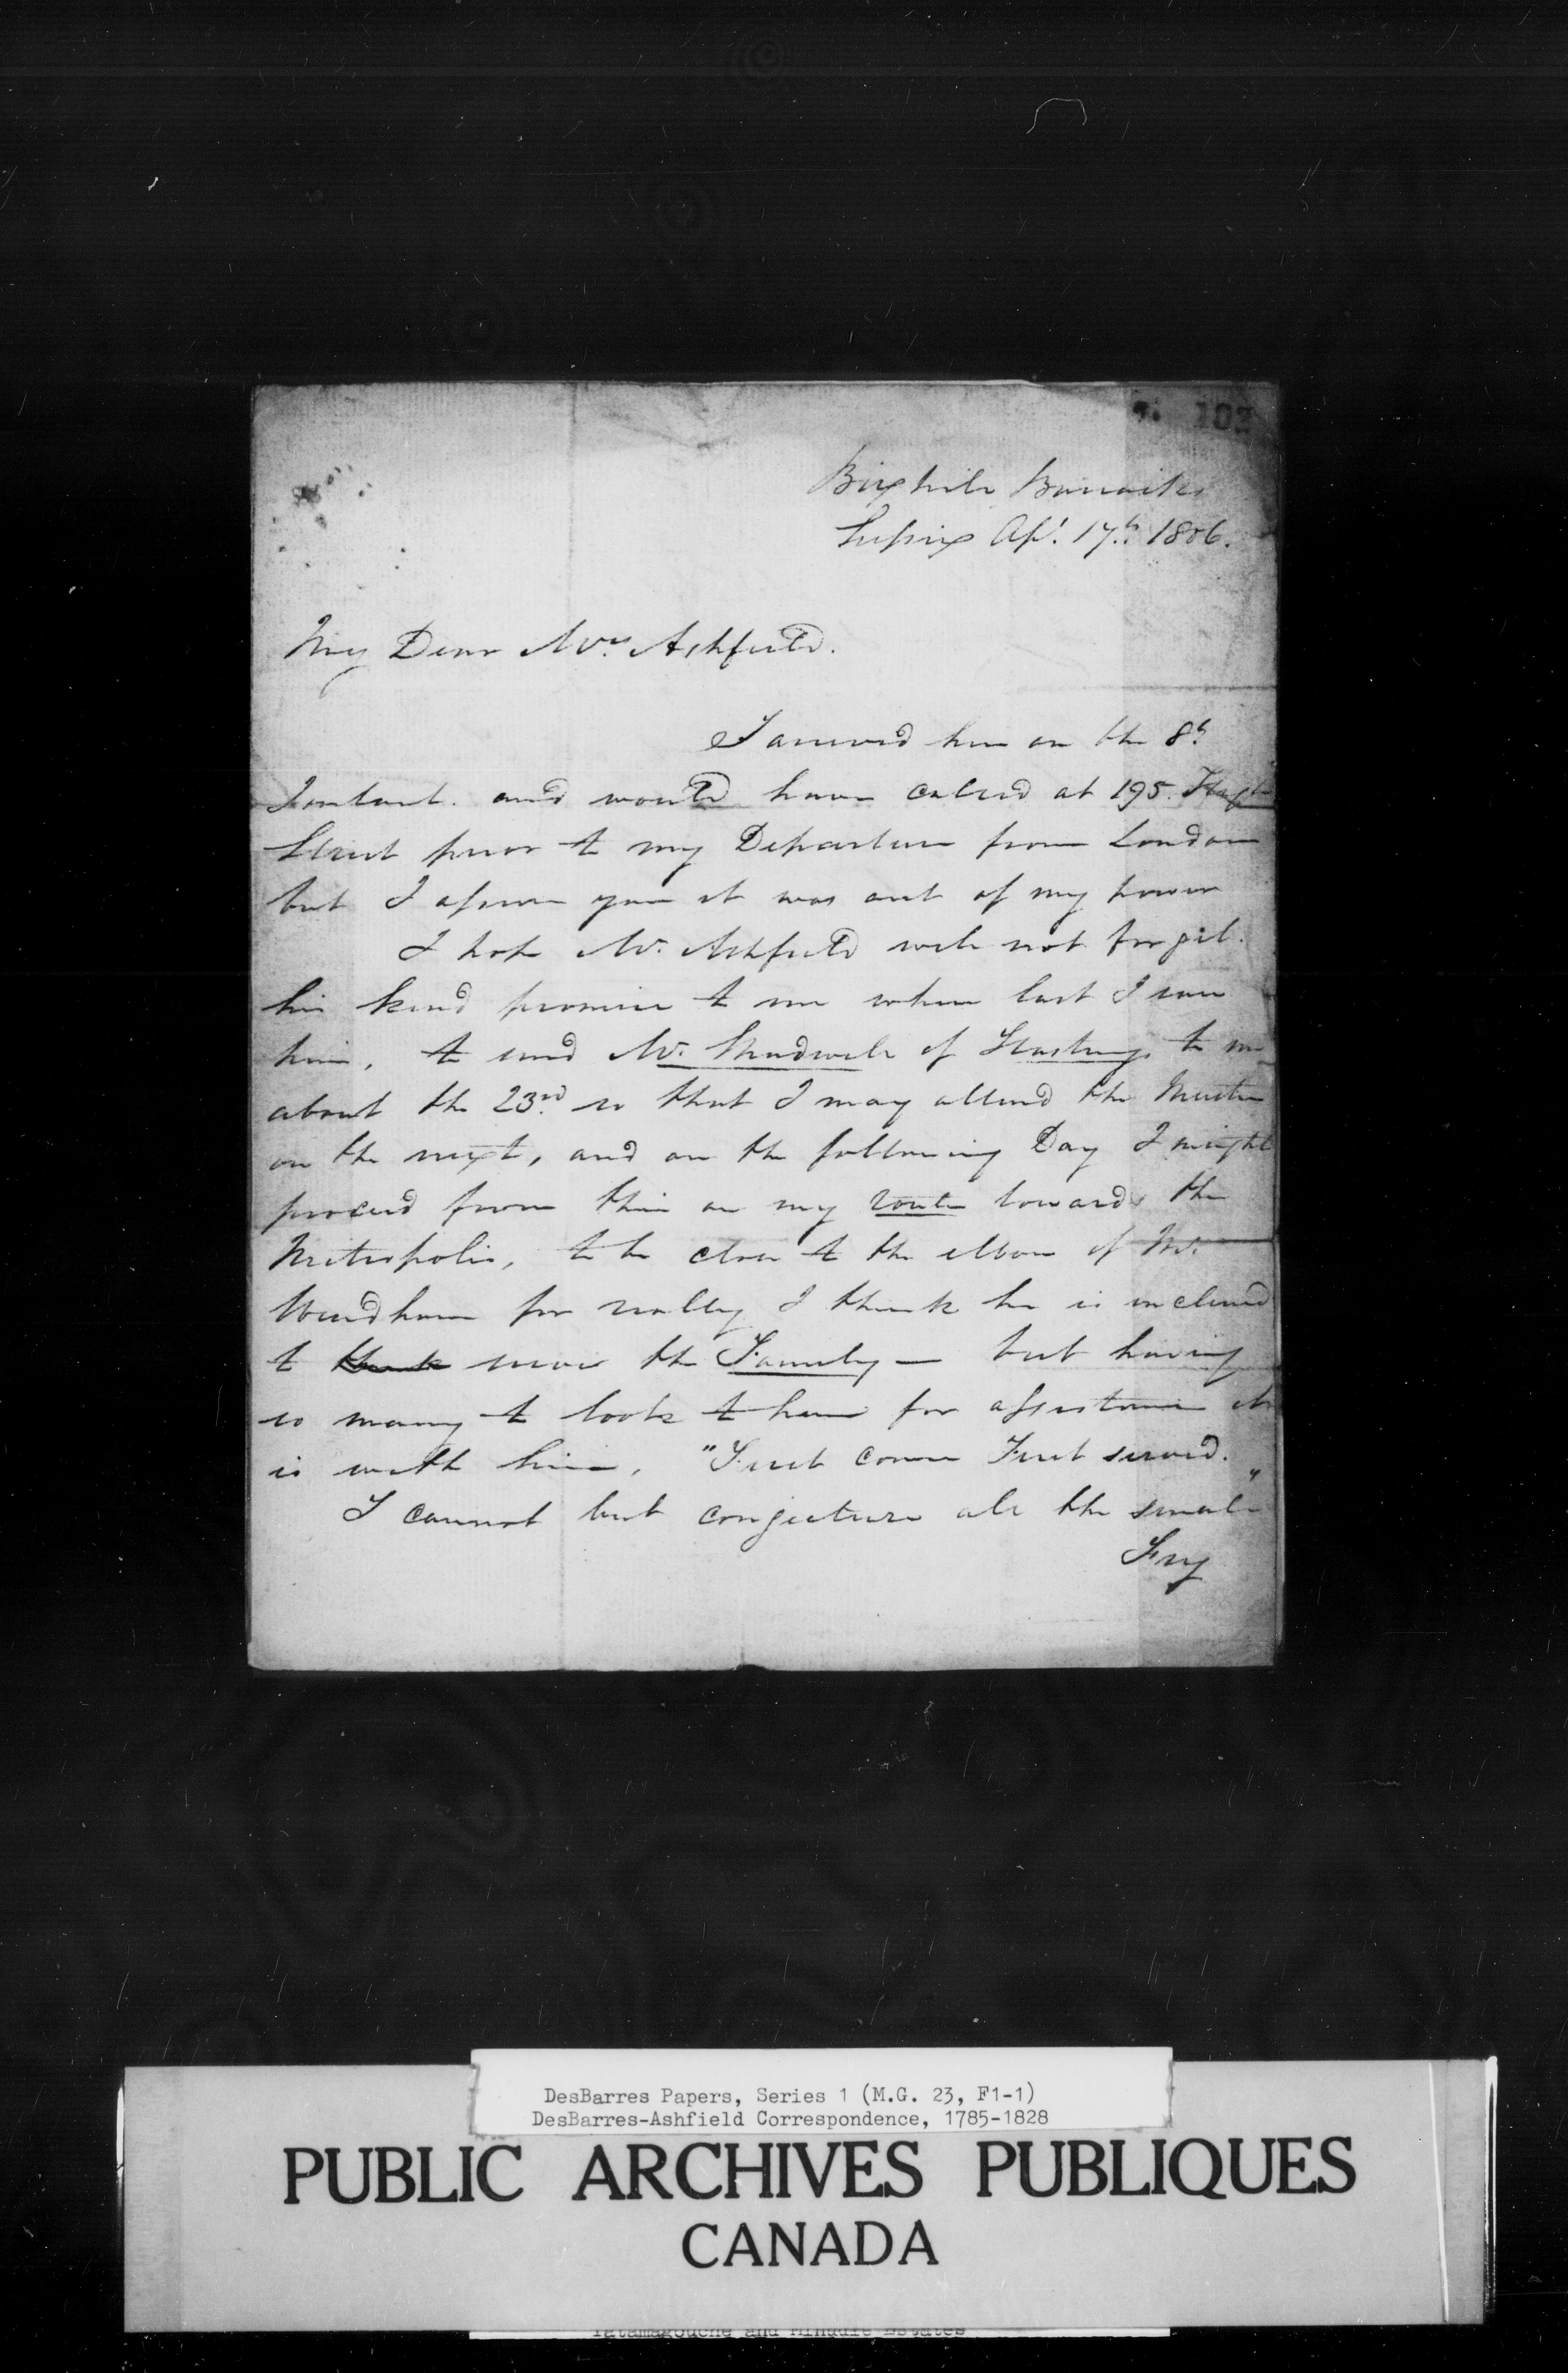 102
Bexhill Barracks
Sussex Apl. 17th. 1806.
My Dear Mrs. Ashfield.
I arrived here on the 8th.
Instant. and would have called at 195. High
Street prior to my Departure from London
but I assure you it was out of my power
I hope Mr. Ashfield will not forget.
his kind promise to me when last I saw
him, to send Mr. Shadwell of Hastings to me
about the 23rd. so that I may attend the Muster
on the next, and on the following Day I might
proceed from this on my route towards the
Metropolis, to be close to the elbow of Mr.
Windham for really I think he is inclined
to think serve the Family — but having
so many to look to him for assistance it
is with him, "First come First served."
I cannot but conjecture all the small
Fry
DesBarres Papers, Series 1 (M.G. 23, F1-1)
DesBarres-Ashfield Correspondence, 1785-1828
PUBLIC ARCHIVES PUBLIQUES
CANADA
Tatamagouche and Minudie Estates